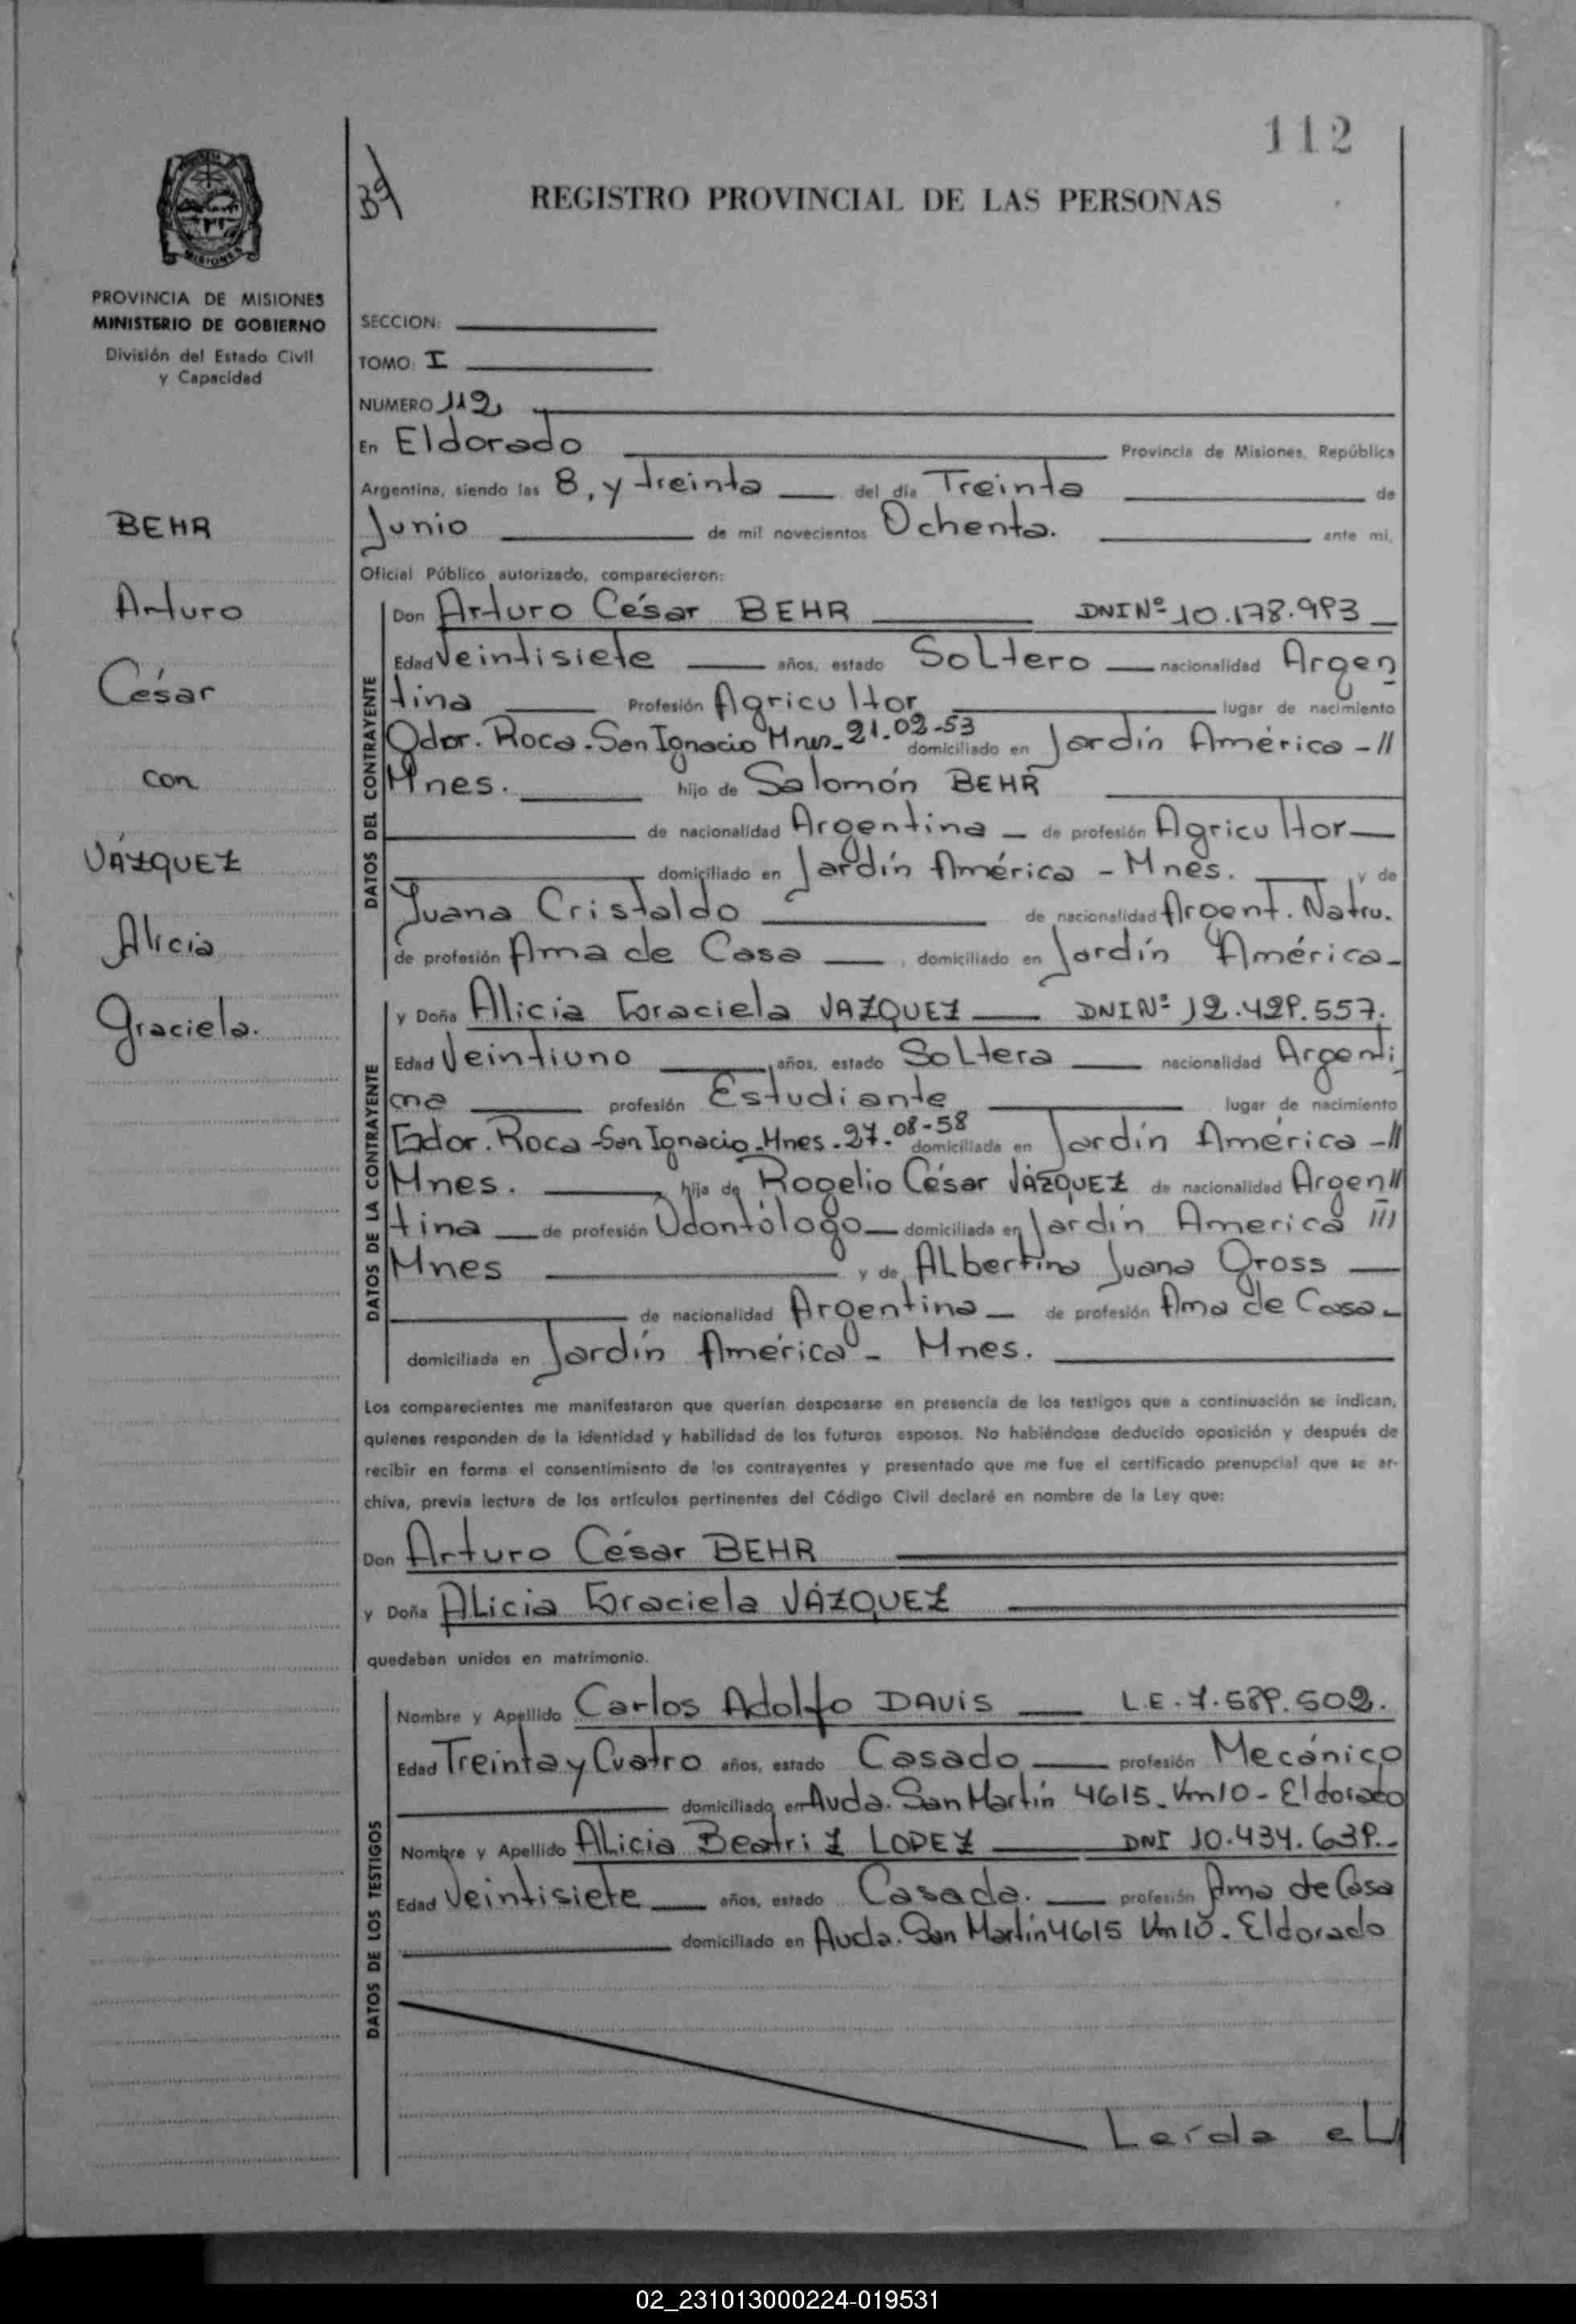 112
REGISTRO PROVINCIAL DE LAS PERSONAS
MISIONES
PROVINCIA DE MISIONES
MINISTERIO DE GOBIERNO
División del Estado Civil
y Capacidad
BEHR
Arturo
César
con
VÁZQUEZ
Alicia
Graciela.
SECCION:
TOMO: I
NUMERO 112
En Eldorado Provincia de Misiones, República
Argentina, siendo las 8, y treinta del día Treinta de
Junio de mil novecientos Ochenta. ante mí,
Oficial Público autorizado, comparecieron:
DATOS DEL CONTRAYENTE
Don Arturo César BEHR DNI Nº 10.178.993
Edad Veintisiete años, estado Soltero nacionalidad Argen
tina Profesión Agricultor lugar de nacimiento
Gdor. Roca - San Ignacio Mnes - 21-02-53 domiciliado en Jardín América - //
Mnes. hijo de Salomón BEHR
de nacionalidad Argentina - de profesión Agricultor
domiciliado en Jardín América - Mnes. y de
Juana Cristaldo de nacionalidad Argent. Natru.
de profesión Ama de Casa domiciliado en Jardín América -
DATOS DE LA CONTRAYENTE
y Doña Alicia Graciela VAZQUEZ DNI Nº 12.429.557.
Edad Veintiuno años, estado Soltera nacionalidad Argenti
na profesión Estudiante lugar de nacimiento
Gdor. Roca - San Ignacio - Mnes - 27-08-58 domiciliada en Jardín América - //
Mnes. hija de Rogelio César VÁZQUEZ de nacionalidad Argen //
tina de profesión Odontólogo domiciliada en Jardín America ///
Mnes y de Albertina Juana Gross
de nacionalidad Argentina de profesión Ama de Casa -
domiciliada en Jardín América - Mnes.
Los comparecientes me manifestaron que querían desposarse en presencia de los testigos que a continuación se indican,
quienes responden de la identidad y habilidad de los futuros esposos. No habiéndose deducido oposición y después de
recibir en forma el consentimiento de los contrayentes y presentado que me fue el certificado prenupcial que se ar-
chiva, previa lectura de los artículos pertinentes del Código Civil declaré en nombre de la Ley que:
Don Arturo César BEHR
y Doña Alicia Graciela VÁZQUEZ
quedaban unidos en matrimonio.
DATOS DE LOS TESTIGOS
Nombre y Apellido Carlos Adolfo DAVIS L.E. 7.589.502.
Edad Treinta y Cuatro años, estado Casado profesión Mecánico
domiciliado en Avda. San Martín 4615 - Km 10 - Eldorado
Nombre y Apellido Alicia Beatriz LOPEZ DNI 10.434.639.-
Edad Veintisiete años, estado Casada. profesión Ama de Casa
domiciliado en Avda. San Martín 4615 Km 10 - Eldorado
Leída el
02_231013000224-019531